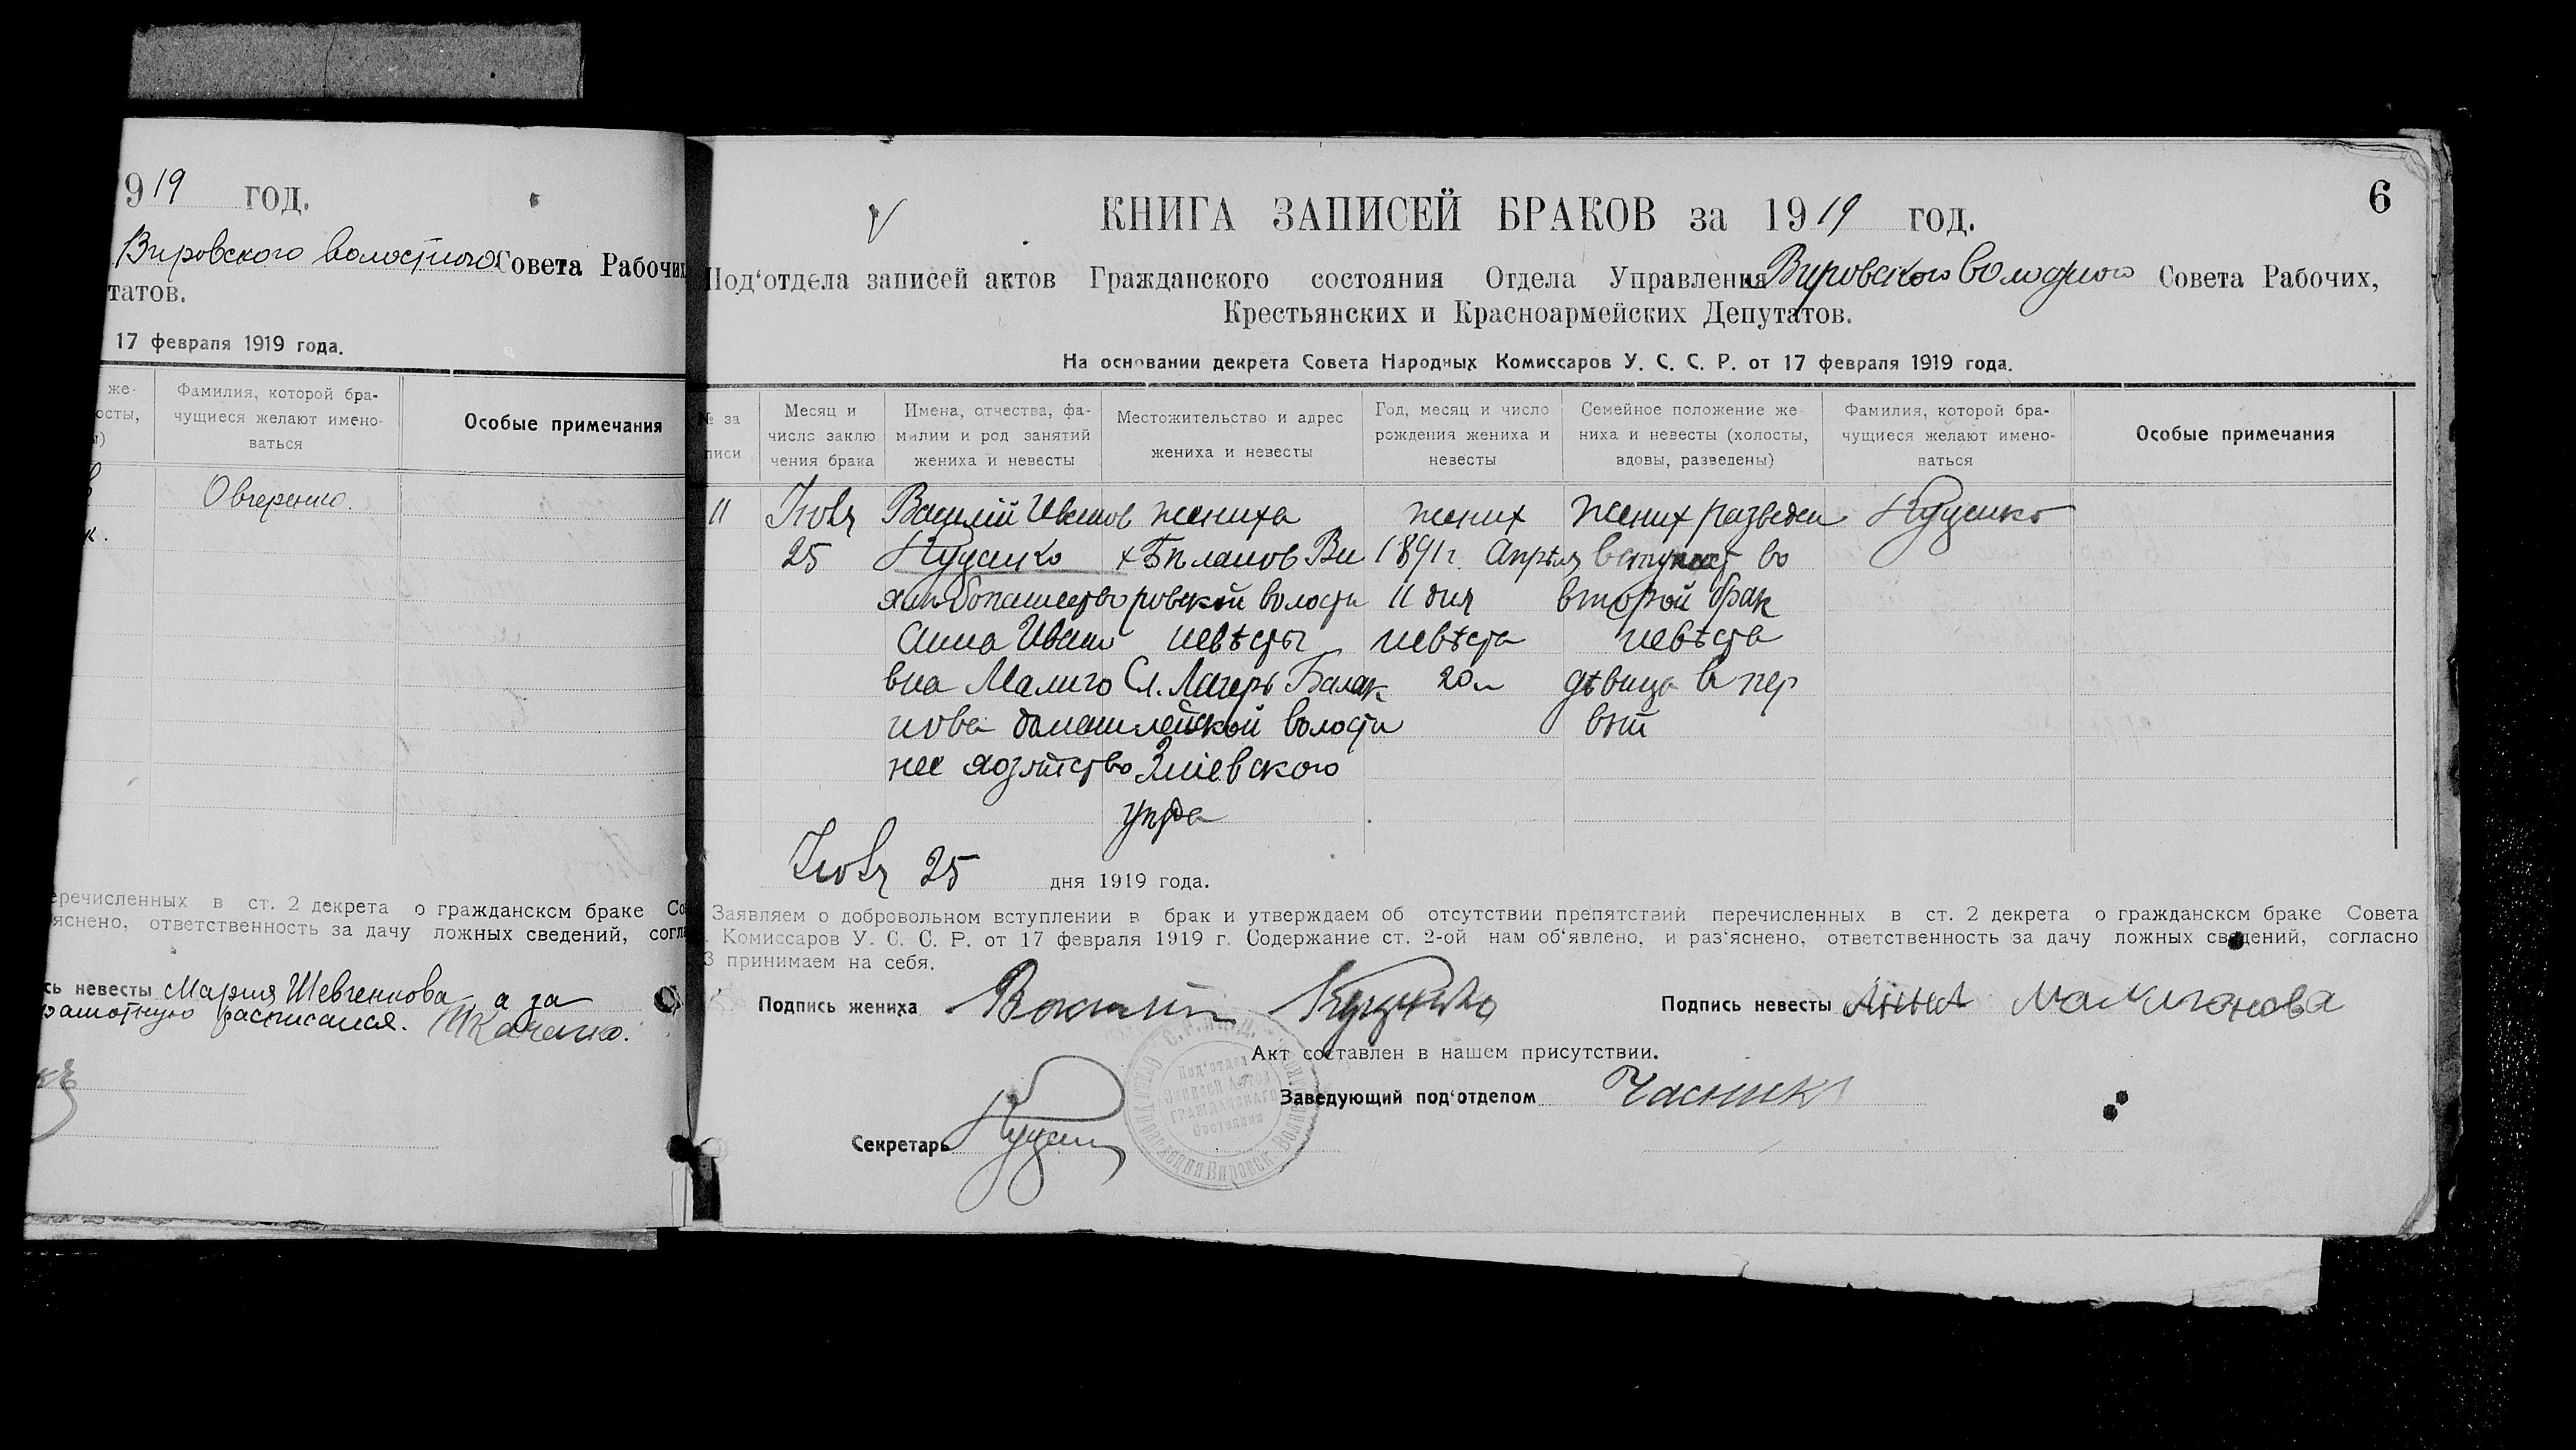 919 год.
Вировского волостного Совета Рабочих
татов.
17 февраля 1919 года.
же-
осты,
Фамилия, которой бра-
чущиеся желают имено-
ваться
Особые примечания
Овчеренко.
к.
еречисленных в ст. 2 декрета о гражданском браке Со
яснено, ответственность за дачу ложных сведений, согла
сь невесты Мария Шевченкова а за
рамотную расписался. Ткаченко.
6
КНИГА ЗАПИСЕЙ БРАКОВ за 1919 год.
Под‘отдела записей актов Гражданского состояния Отдела Управления Вировского волостного Совета Рабочих,
Крестьянских и Красноармейских Депутатов.
На основании декрета Совета Народных Комиссаров У. С. С. Р. от 17 февраля 1919 года.
№ за
писи
Месяц и
число заклю
чения брака
Имена, отчества, фа-
милии и род занятий
жениха и невесты
Местожительство и адрес
жениха и невесты
Год, месяц и число
рождения жениха и
невесты
Семейное положение же
ниха и невесты (холосты,
вдовы, разведены)
Фамилия, которой бра-
чущиеся желают имено-
ваться
Особые примечания
11
Іюня
25
Василій Иванов
Куценко
хлѣбопашество
Анна Ивано
вна Малиго
нова домаш
нее хозяйство
жениха
х Бплаков Ви
ровской волости
невѣсты
Сл. Лагерь Балак
лейской волости
Зміевского
уѣзда
жених
1891 г. Апрѣля
11 дня
невѣста
20 л
Жених разведен
вступает во
второй брак
невѣста
дѣвица в пер
вый
Куценко
Іюня 25 дня 1919 года.
Заявляем о добровольном вступлении в брак и утверждаем об отсутствии препятствий перечисленных в ст. 2 декрета о гражданском браке Совета
. Комиссаров У. С. С. Р. от 17 февраля 1919 г. Содержание ст. 2-ой нам об‘явлено, и раз‘яснено, ответственность за дачу ложных сведений, согласно
3 принимаем на себя.
Подпись жениха Василий Куценко
Подпись невесты Анна Малигонова
Акт составлен в нашем присутствии.
Заведующий под‘отделом Часник
Секретарь Куцен
Под‘отдел
Записей Актов
Гражданскаго
Состояния